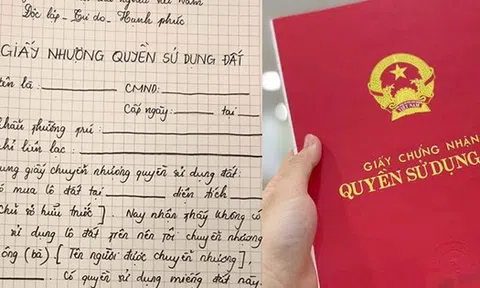 Độc lập - Tự do - Hạnh phúc
GIẤY NHƯỢNG QUYỀN SỬ DỤNG ĐẤT
tên là: CMND:
Cấp ngày: tại
khẩu thường trú:
chỉ liên lạc:
dung giấy chuyển nhượng quyền sử dụng đất:
có mua lô đất tại diện tích
Chủ sở hữu trước]. Nay nhận thấy không có
sử dụng lô đất trên nên tôi chuyển nhượng
ông (bà) [Tên người được chuyển nhượng],
. Có quyền sử dụng miếng đất này.
VIỆT NAM
GIẤY CHỨNG NHẬN
QUYỀN SỬ DỤNG